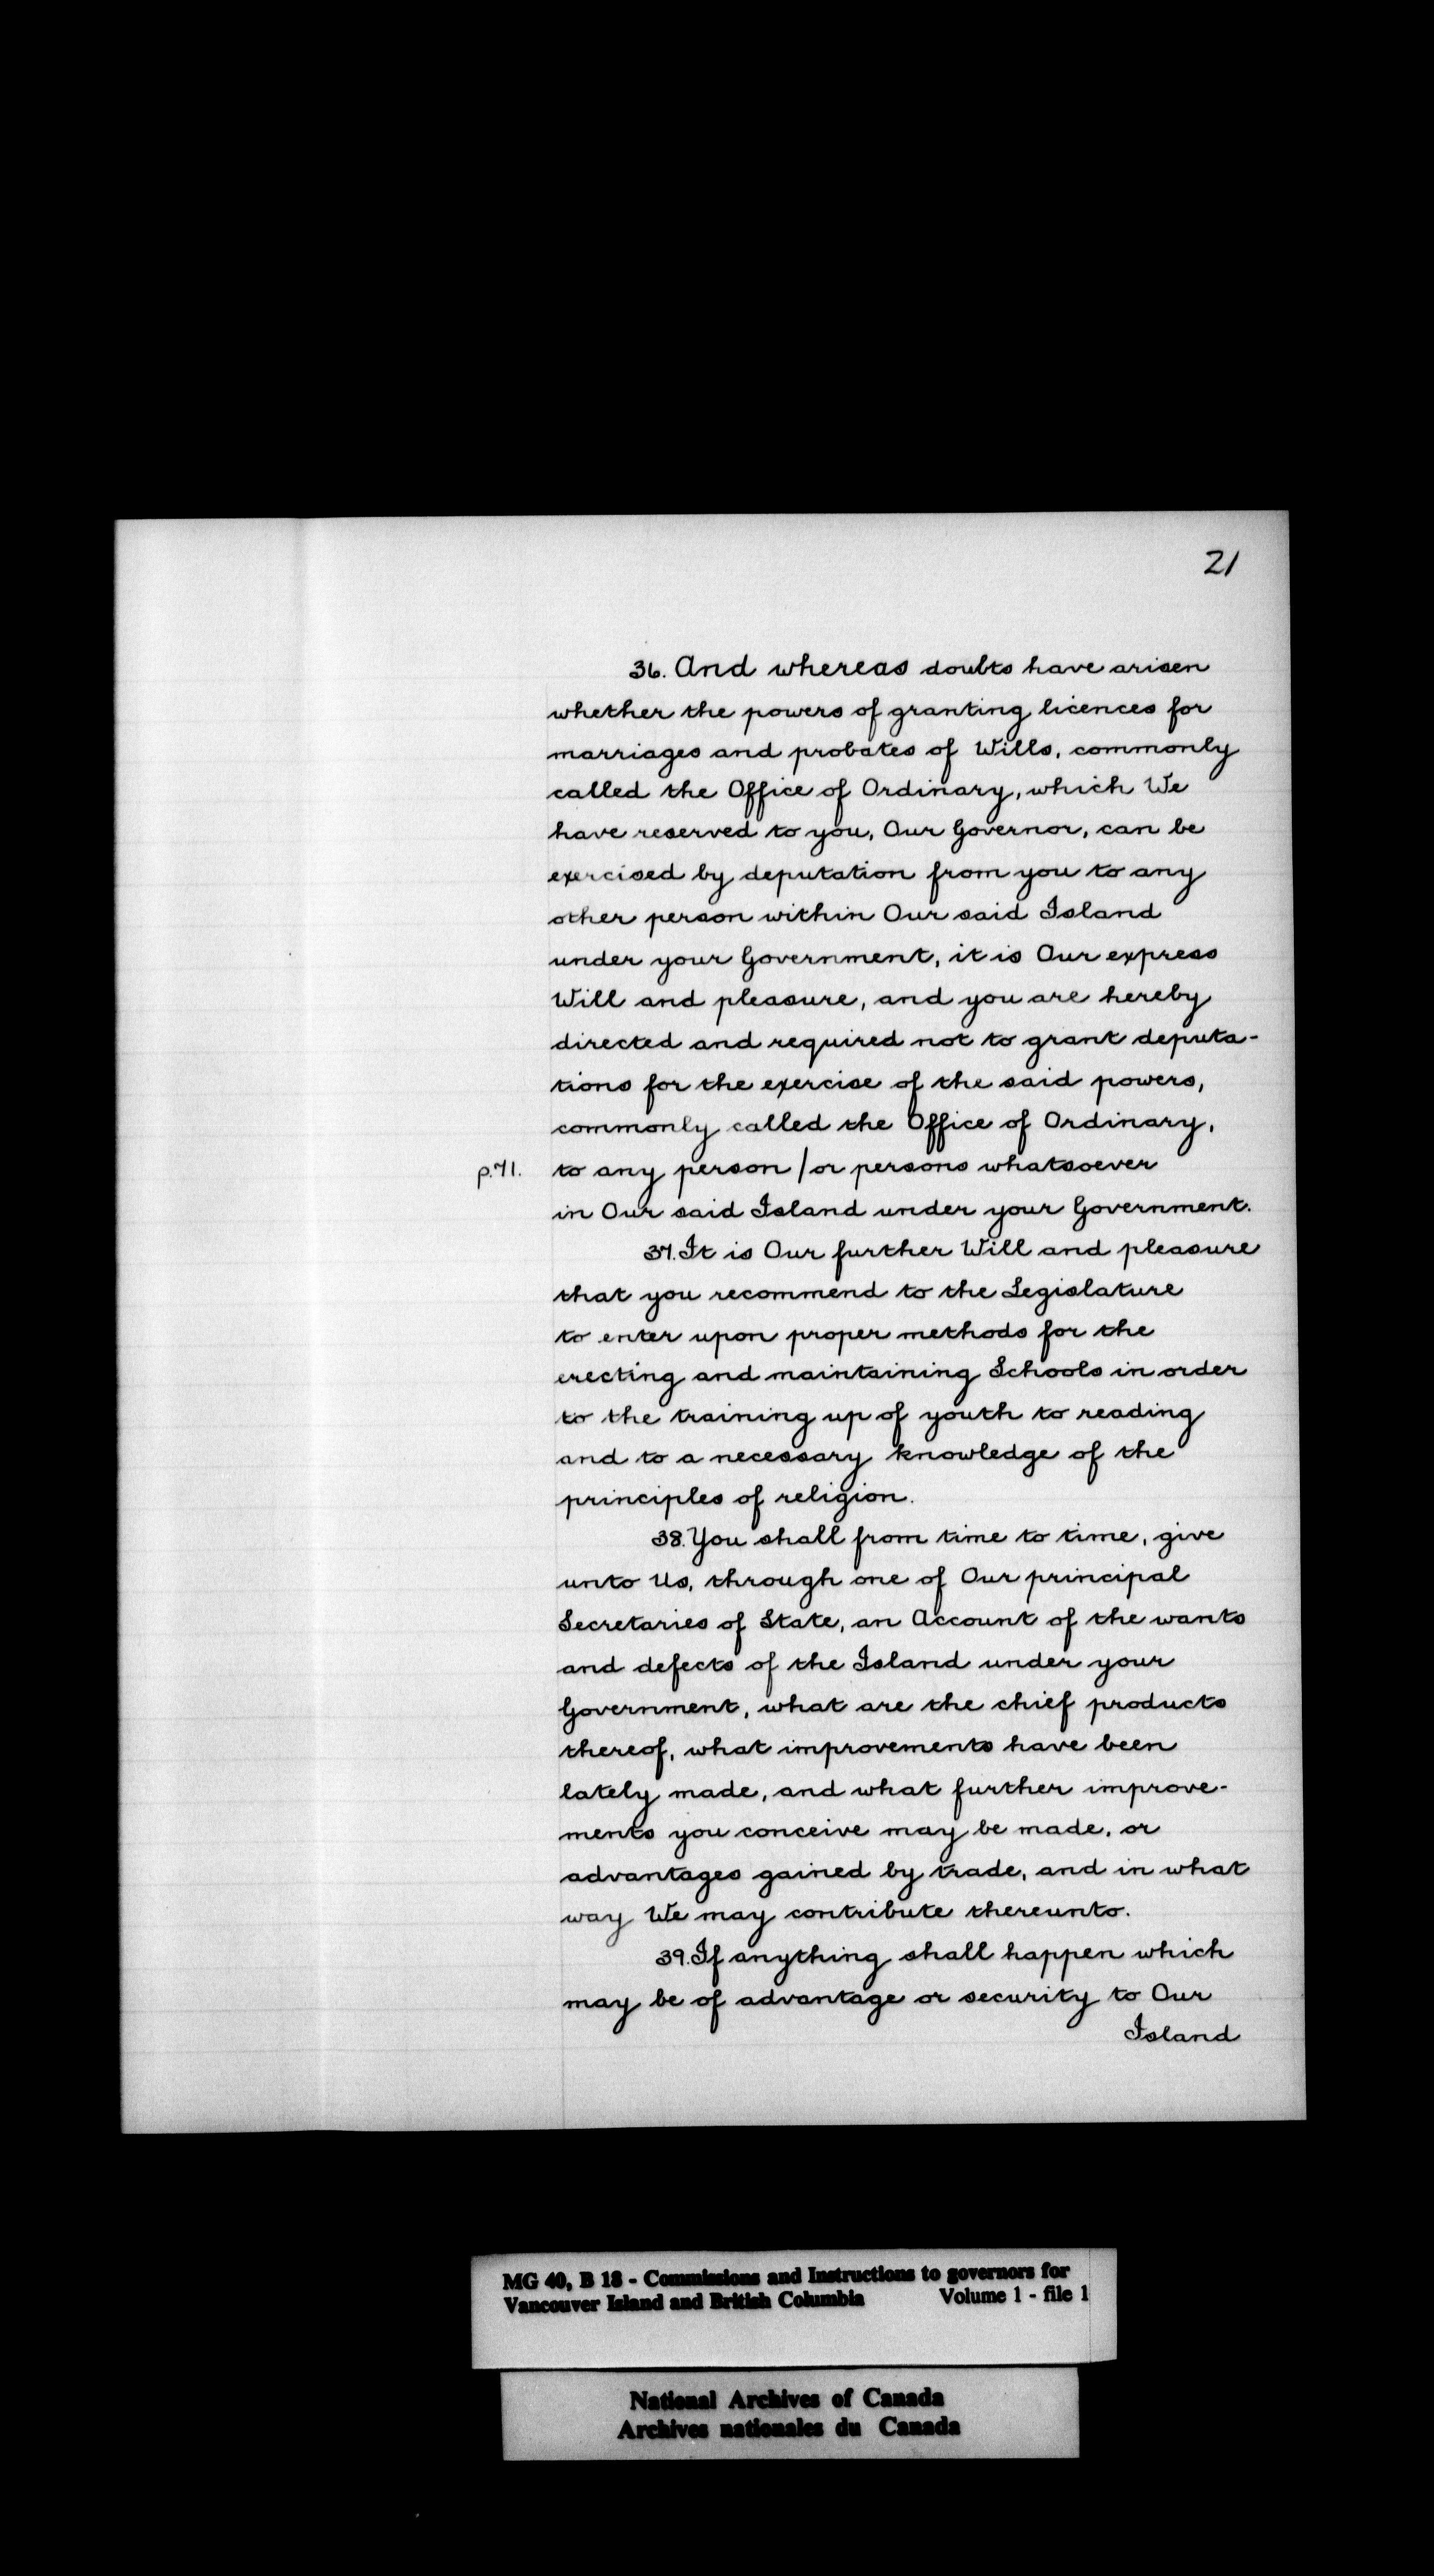 21
36. And whereas doubts have arisen
whether the powers of granting licences for
marriages and probates of Wills, commonly
called the Office of Ordinary, which We
have reserved to you, Our Governor, can be
exercised by deputation from you to any
other person within Our said Island
under your Government, it is Our express
Will and pleasure, and you are hereby
directed and required not to grant deputa-
tions for the exercise of the said powers,
commonly called the Office of Ordinary,
p.71. to any person / or persons whatsoever
in Our said Island under your Government.
37. It is Our further Will and pleasure
that you recommend to the Legislature
to enter upon proper methods for the
erecting and maintaining Schools in order
to the training up of youth to reading
and to a necessary knowledge of the
principles of religion.
38. You shall from time to time, give
unto Us, through one of Our principal
Secretaries of State, an Account of the wants
and defects of the Island under your
Government, what are the chief products
thereof, what improvements have been
lately made, and what further improve-
ments you conceive may be made, or
advantages gained by trade, and in what
way We may contribute thereunto.
39. If anything shall happen which
may be of advantage or security to Our
Island
MG 40, B 18 - Commissions and Instructions to governors for
Vancouver Island and British Columbia Volume 1 - file 1
National Archives of Canada
Archives nationales du Canada